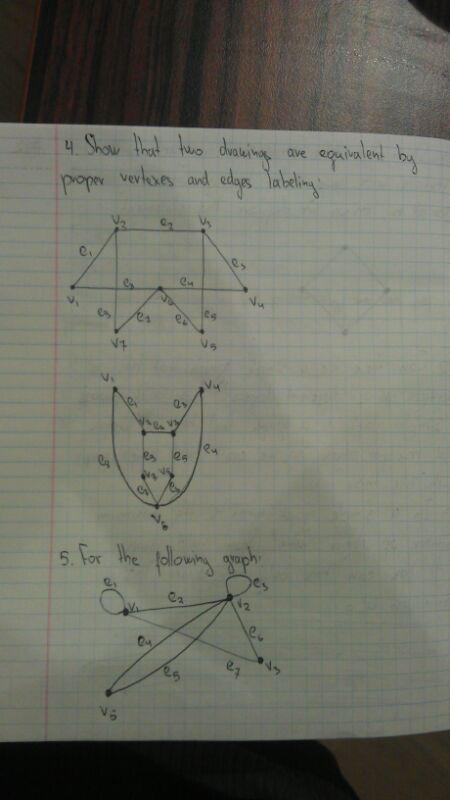 4. Show that two drawings are equivalent by
proper vertexes and edges labeling:
V2 e2 V3
e1 e3
e8 e4
V1 V6 V4
e9 e7 e6 e5
V7 V5
V1 V4
e1 e3
V2 e2 V3
e8 e9 e5 e4
V7 V5
e7 e6
V6
5. For the following graph:
e1 e3
V1 e2 V2
e4 e6
e5 e7 V3
V5